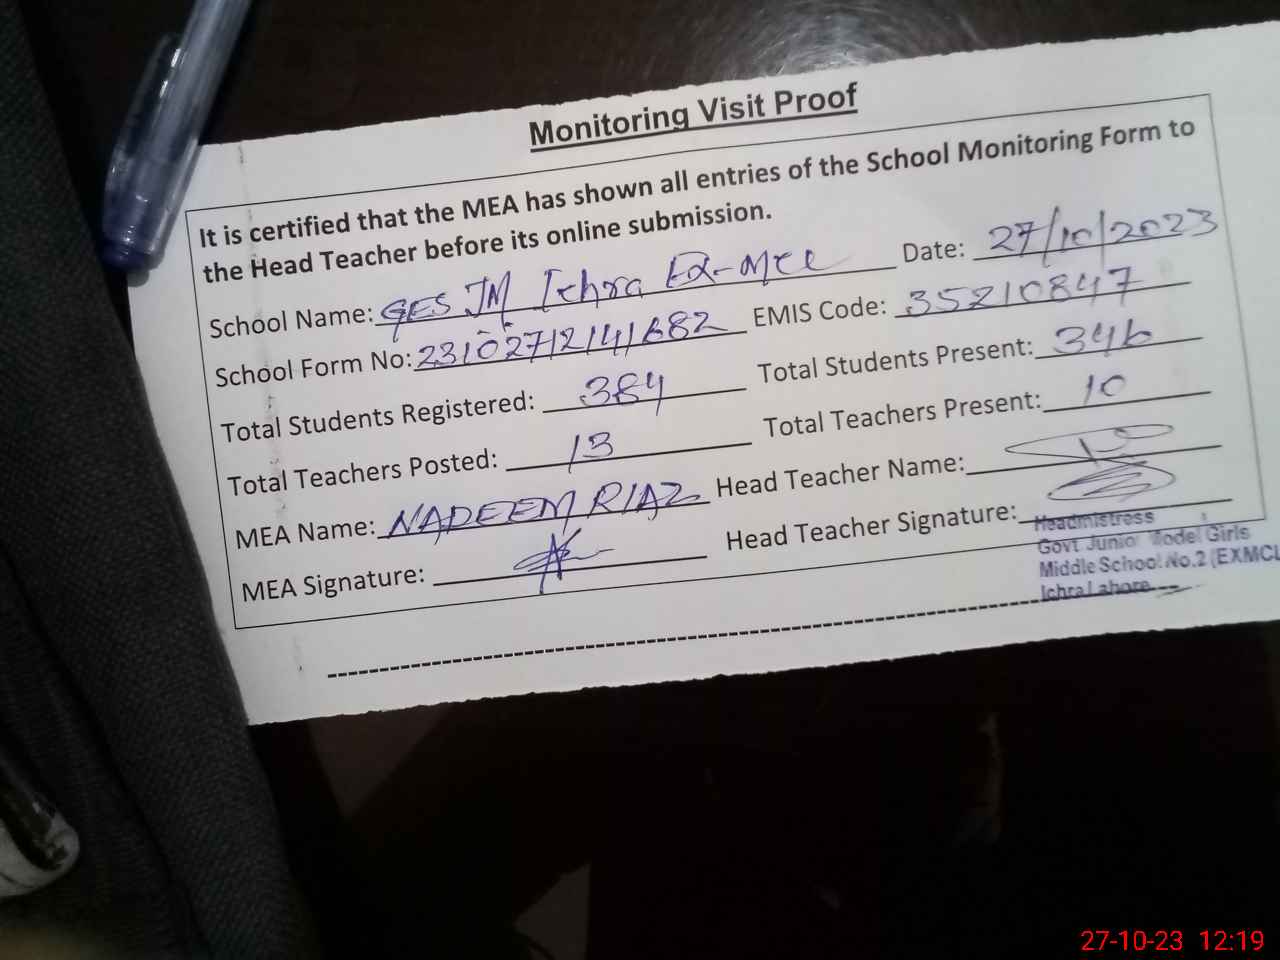 Monitoring Visit Proof
It is certified that the MEA has shown all entries of the School Monitoring Form to
the Head Teacher before its online submission.
School Name: GES JM Ichra Ex-MCL Date: 27/10/2023
School Form No: 23102712141682 EMIS Code: 35210847
Total Students Registered: 384 Total Students Present: 346
Total Teachers Posted: 13 Total Teachers Present: 10
MEA Name: NADEEM RIAZ Head Teacher Name:
MEA Signature: Head Teacher Signature:
Headmistress
Govt Junior Model Girls
Middle School No.2 (EXMCL
Ichra Lahore
27-10-23 12:19